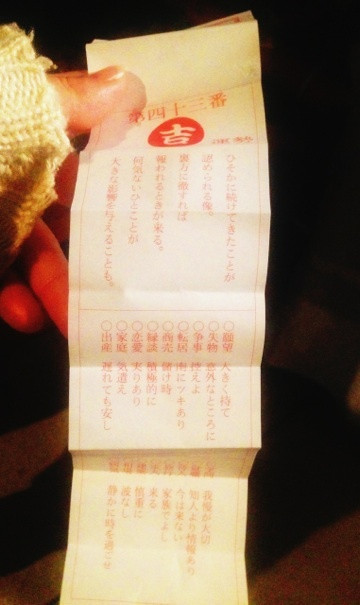 第四十三番
吉
運勢
ひそかに続けてきたことが
認められる俺。
裏方に徹すれば
報われるときが来る。
何気ないひとことが
大きな影響を与えることも。
○願望 大きく待て
○失物 意外なところに
○争事 控えよ
○転居 南にツキあり
○商売 儲け時
○縁談 積極的に
○恋愛 実りあり
○家庭 気遣え
○出産 遅れても安し
我慢が大切
知人より情報あり
今は来ない
家族でよし
来る
慎重に
波なし
静かに時を過ごせ